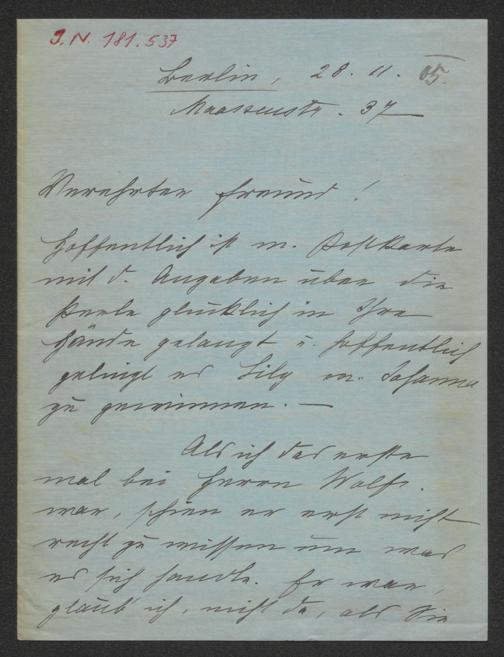 J.N. 181.537
Berlin, 28.11.05.
Maassenstr. 37
Verehrter Freund!
Hoffentlich ist m. Postkarte
mit d. Angaben über die
Perle glücklich in Ihre
Hände gelangt u. hoffentlich
gelingt es Lily m. Johanna
zu gewinnen. —
Als ich das erste
mal bei Herrn Wolff.
war, schien er erst nicht
recht zu wissen um was
es sich handle. Er war,
glaub ich, nicht da, als Sie